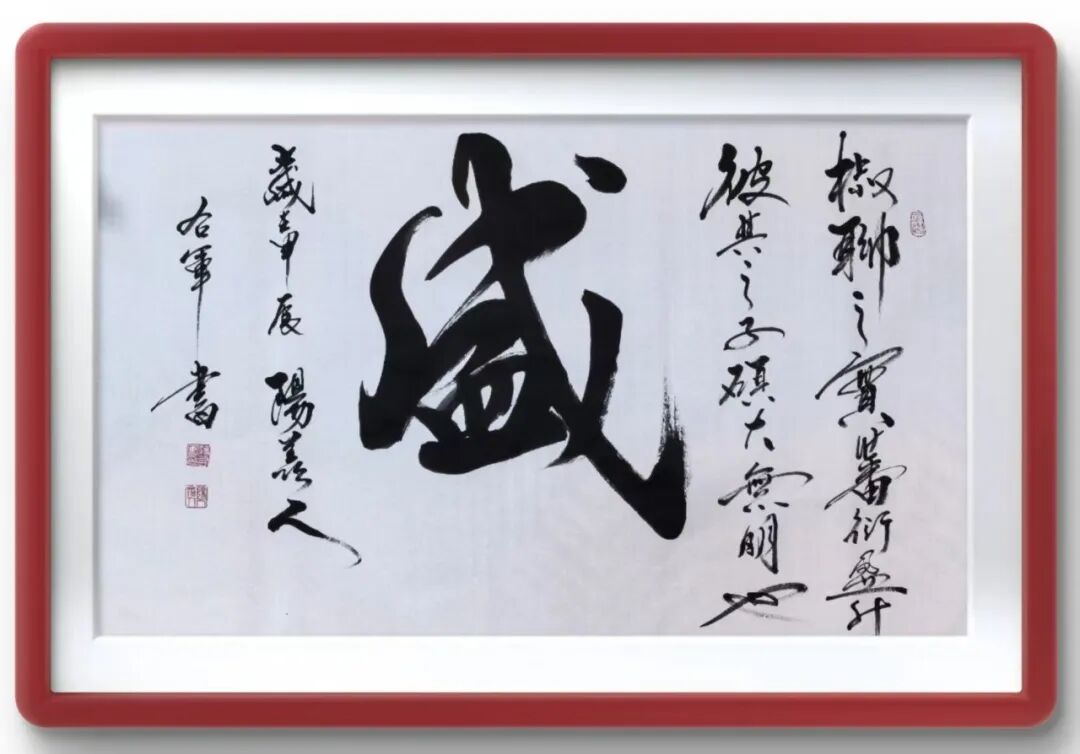 椒聊之實蕃衍盈升
彼其之子碩大無朋也
盛
歲甲辰 陽羨人
軍書